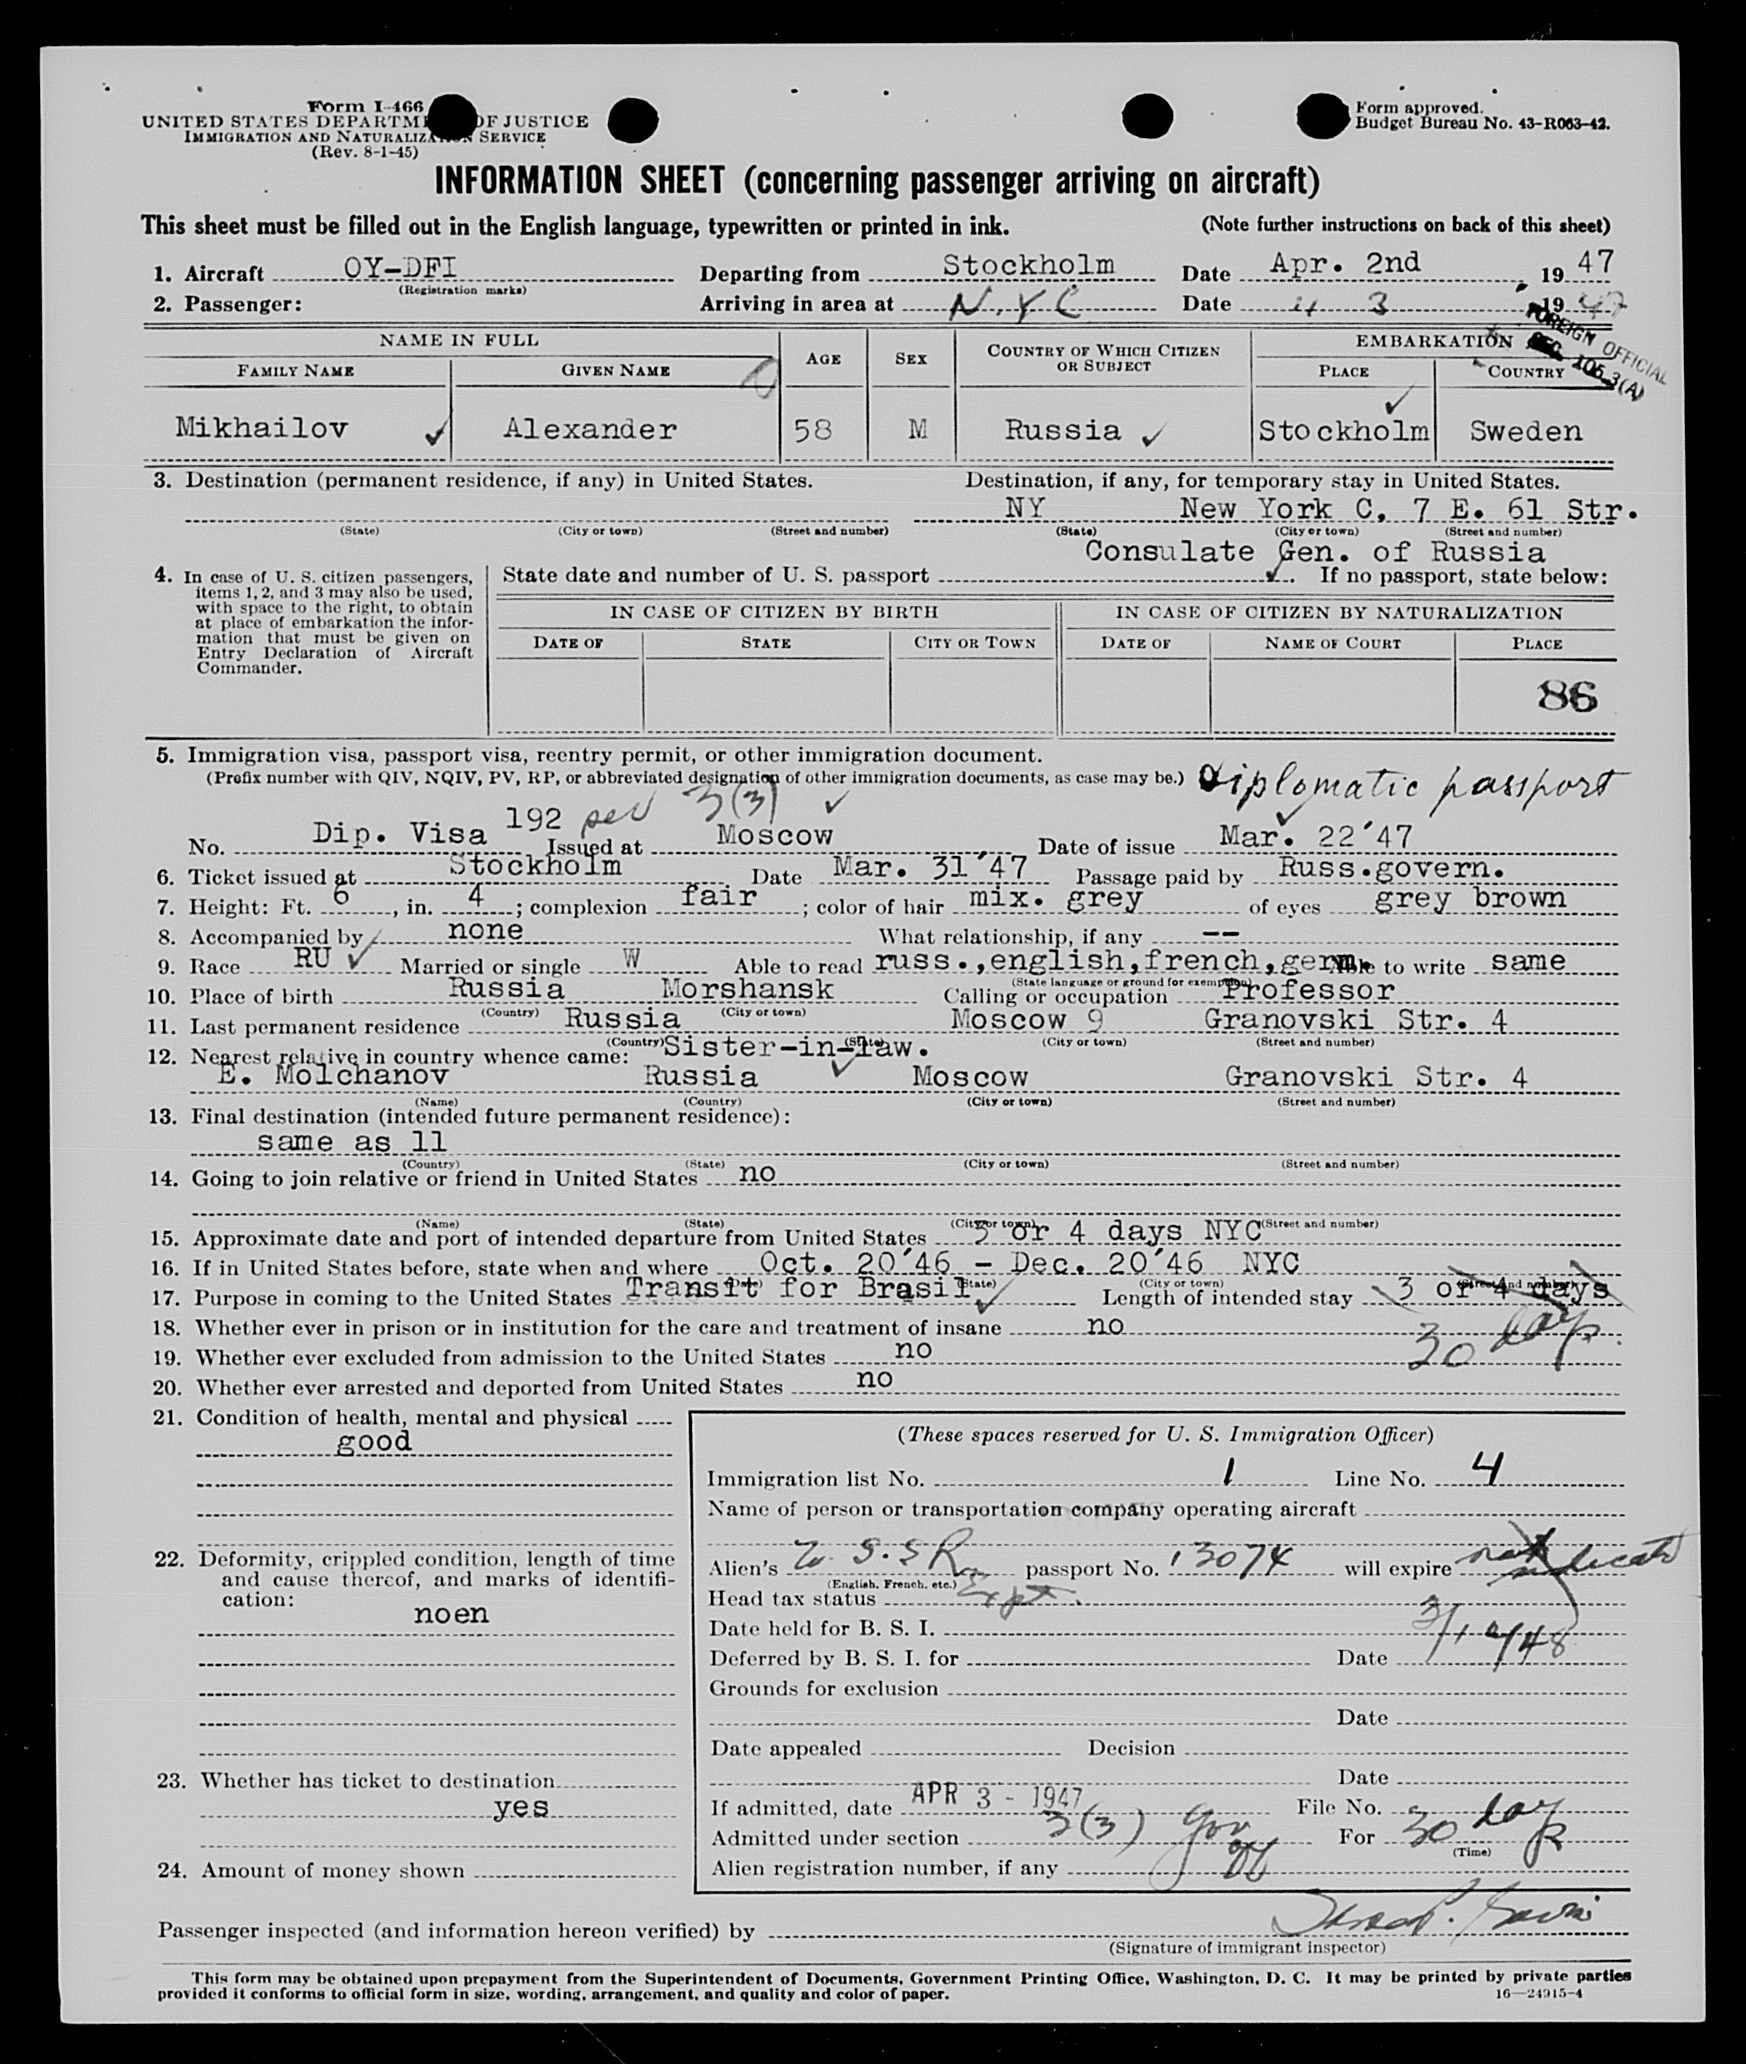 Form I-466
UNITED STATES DEPARTMENT OF JUSTICE
IMMIGRATION AND NATURALIZATION SERVICE
(Rev. 8-1-45)
Form approved.
Budget Bureau No. 43-R063-42.
INFORMATION SHEET (concerning passenger arriving on aircraft)
This sheet must be filled out in the English language, typewritten or printed in ink. (Note further instructions on back of this sheet)
1. Aircraft OY-DFI Departing from Stockholm Date Apr. 2nd, 1947
(Registration marks)
2. Passenger: Arriving in area at N.Y.C Date 4 3, 1947
FOREIGN OFFICIAL
SEC. 105.3(A)
NAME IN FULL AGE SEX COUNTRY OF WHICH CITIZEN OR SUBJECT EMBARKATION
FAMILY NAME GIVEN NAME PLACE COUNTRY
Mikhailov Alexander 58 M Russia Stockholm Sweden
3. Destination (permanent residence, if any) in United States. Destination, if any, for temporary stay in United States.
NY New York C. 7 E. 61 Str.
(State) (City or town) (Street and number) (State) (City or town) (Street and number)
Consulate Gen. of Russia
4. In case of U. S. citizen passengers, items 1, 2, and 3 may also be used, with space to the right, to obtain at place of embarkation the information that must be given on Entry Declaration of Aircraft Commander.
State date and number of U. S. passport . If no passport, state below:
IN CASE OF CITIZEN BY BIRTH IN CASE OF CITIZEN BY NATURALIZATION
DATE OF STATE CITY OR TOWN DATE OF NAME OF COURT PLACE
86
5. Immigration visa, passport visa, reentry permit, or other immigration document.
(Prefix number with QIV, NQIV, PV, RP, or abbreviated designation of other immigration documents, as case may be.) Diplomatic passport
No. Dip. Visa 192 sec 3(3) Issued at Moscow Date of issue Mar. 22'47
6. Ticket issued at Stockholm Date Mar. 31'47 Passage paid by Russ.govern.
7. Height: Ft. 6, in. 4; complexion fair; color of hair mix. grey of eyes grey brown
8. Accompanied by none What relationship, if any --
9. Race RU Married or single W Able to read russ.,english,french,germ. Able to write same
(State language or ground for exemption)
10. Place of birth Russia Morshansk Calling or occupation Professor
(Country) (City or town)
11. Last permanent residence Russia Moscow 9 Granovski Str. 4
(Country) (State) (City or town) (Street and number)
12. Nearest relative in country whence came: Sister-in-law.
E. Molchanov Russia Moscow Granovski Str. 4
(Name) (Country) (City or town) (Street and number)
13. Final destination (intended future permanent residence):
same as 11
(Country) (State) (City or town) (Street and number)
14. Going to join relative or friend in United States no
(Name) (State) (City or town) (Street and number)
15. Approximate date and port of intended departure from United States 3 or 4 days NYC
16. If in United States before, state when and where Oct. 20'46 - Dec. 20'46 NYC
(Date) (State) (City or town) (Street and number)
17. Purpose in coming to the United States Transit for Brasil Length of intended stay 3 or 4 days
30 days
18. Whether ever in prison or in institution for the care and treatment of insane no
19. Whether ever excluded from admission to the United States no
20. Whether ever arrested and deported from United States no
21. Condition of health, mental and physical
good
22. Deformity, crippled condition, length of time and cause thereof, and marks of identification:
noen
23. Whether has ticket to destination
yes
24. Amount of money shown
(These spaces reserved for U. S. Immigration Officer)
Immigration list No. 1 Line No. 4
Name of person or transportation company operating aircraft
Alien's U.S.S.R passport No. 13074 will expire
(English, French, etc.)
Head tax status Expt.
Date held for B. S. I.
3/14/48
Deferred by B. S. I. for Date
Grounds for exclusion
Date
Date appealed Decision
Date
If admitted, date APR 3 - 1947 File No.
Admitted under section 3(3) Gov off For 30 days
(Time)
Alien registration number, if any
Passenger inspected (and information hereon verified) by
(Signature of immigrant inspector)
This form may be obtained upon prepayment from the Superintendent of Documents, Government Printing Office, Washington, D. C. It may be printed by private parties
provided it conforms to official form in size, wording, arrangement, and quality and color of paper. 16—24915-4